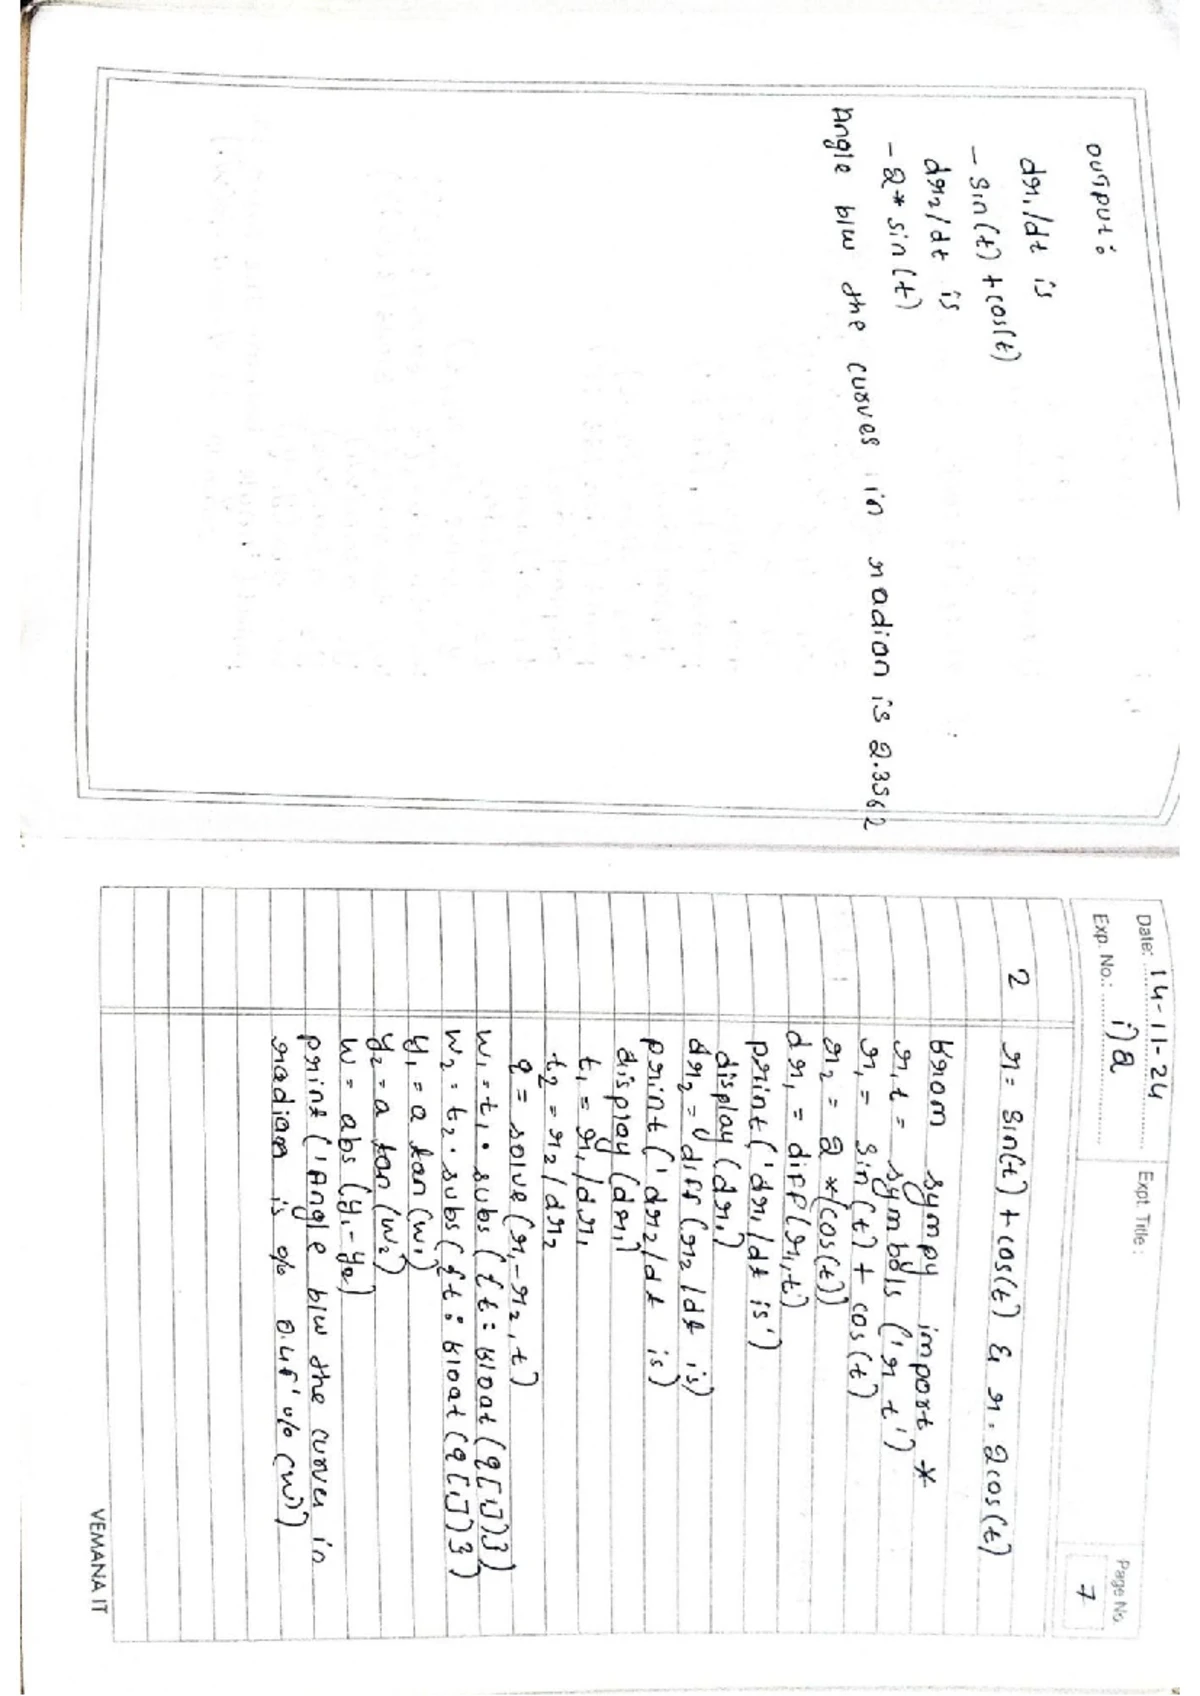 output:
dr₁/dt is
- sin(t) + cos(t)
dr₂/dt is
- 2* sin(t)
Angle b/w the curves in radian is 2.3562
Date: 14-11-24
Exp. No.: i)a
Expt. Title:
Page No. 7
2 r= sin(t) + cos(t) & r. 2cos(t)
from sympy import *
r,t = symbols ('r t')
r₁ = sin(t) + cos(t)
r₂ = 2 *(cos(t))
dr₁ = diff(r₁,t)
print('dr₁/dt is')
display(dr₁)
dr₂ = diff(r₂/dt is)
print('dr₂/dt is)
display(dr₁)
t₁ = r₁/dr₁
t₂ = r₂/dr₂
q = solve(r₁-r₂,t)
w₁=t₁.subs({t: float(q[1])3)
w₂=t₂.subs({t: float(q[1])3)
y₁=atan(w₁)
y₂=atan(w₂)
w=abs(y₁-y₂)
print('Angle b/w the curves in
radian is % 0.4f'%(w))
VEMANA IT